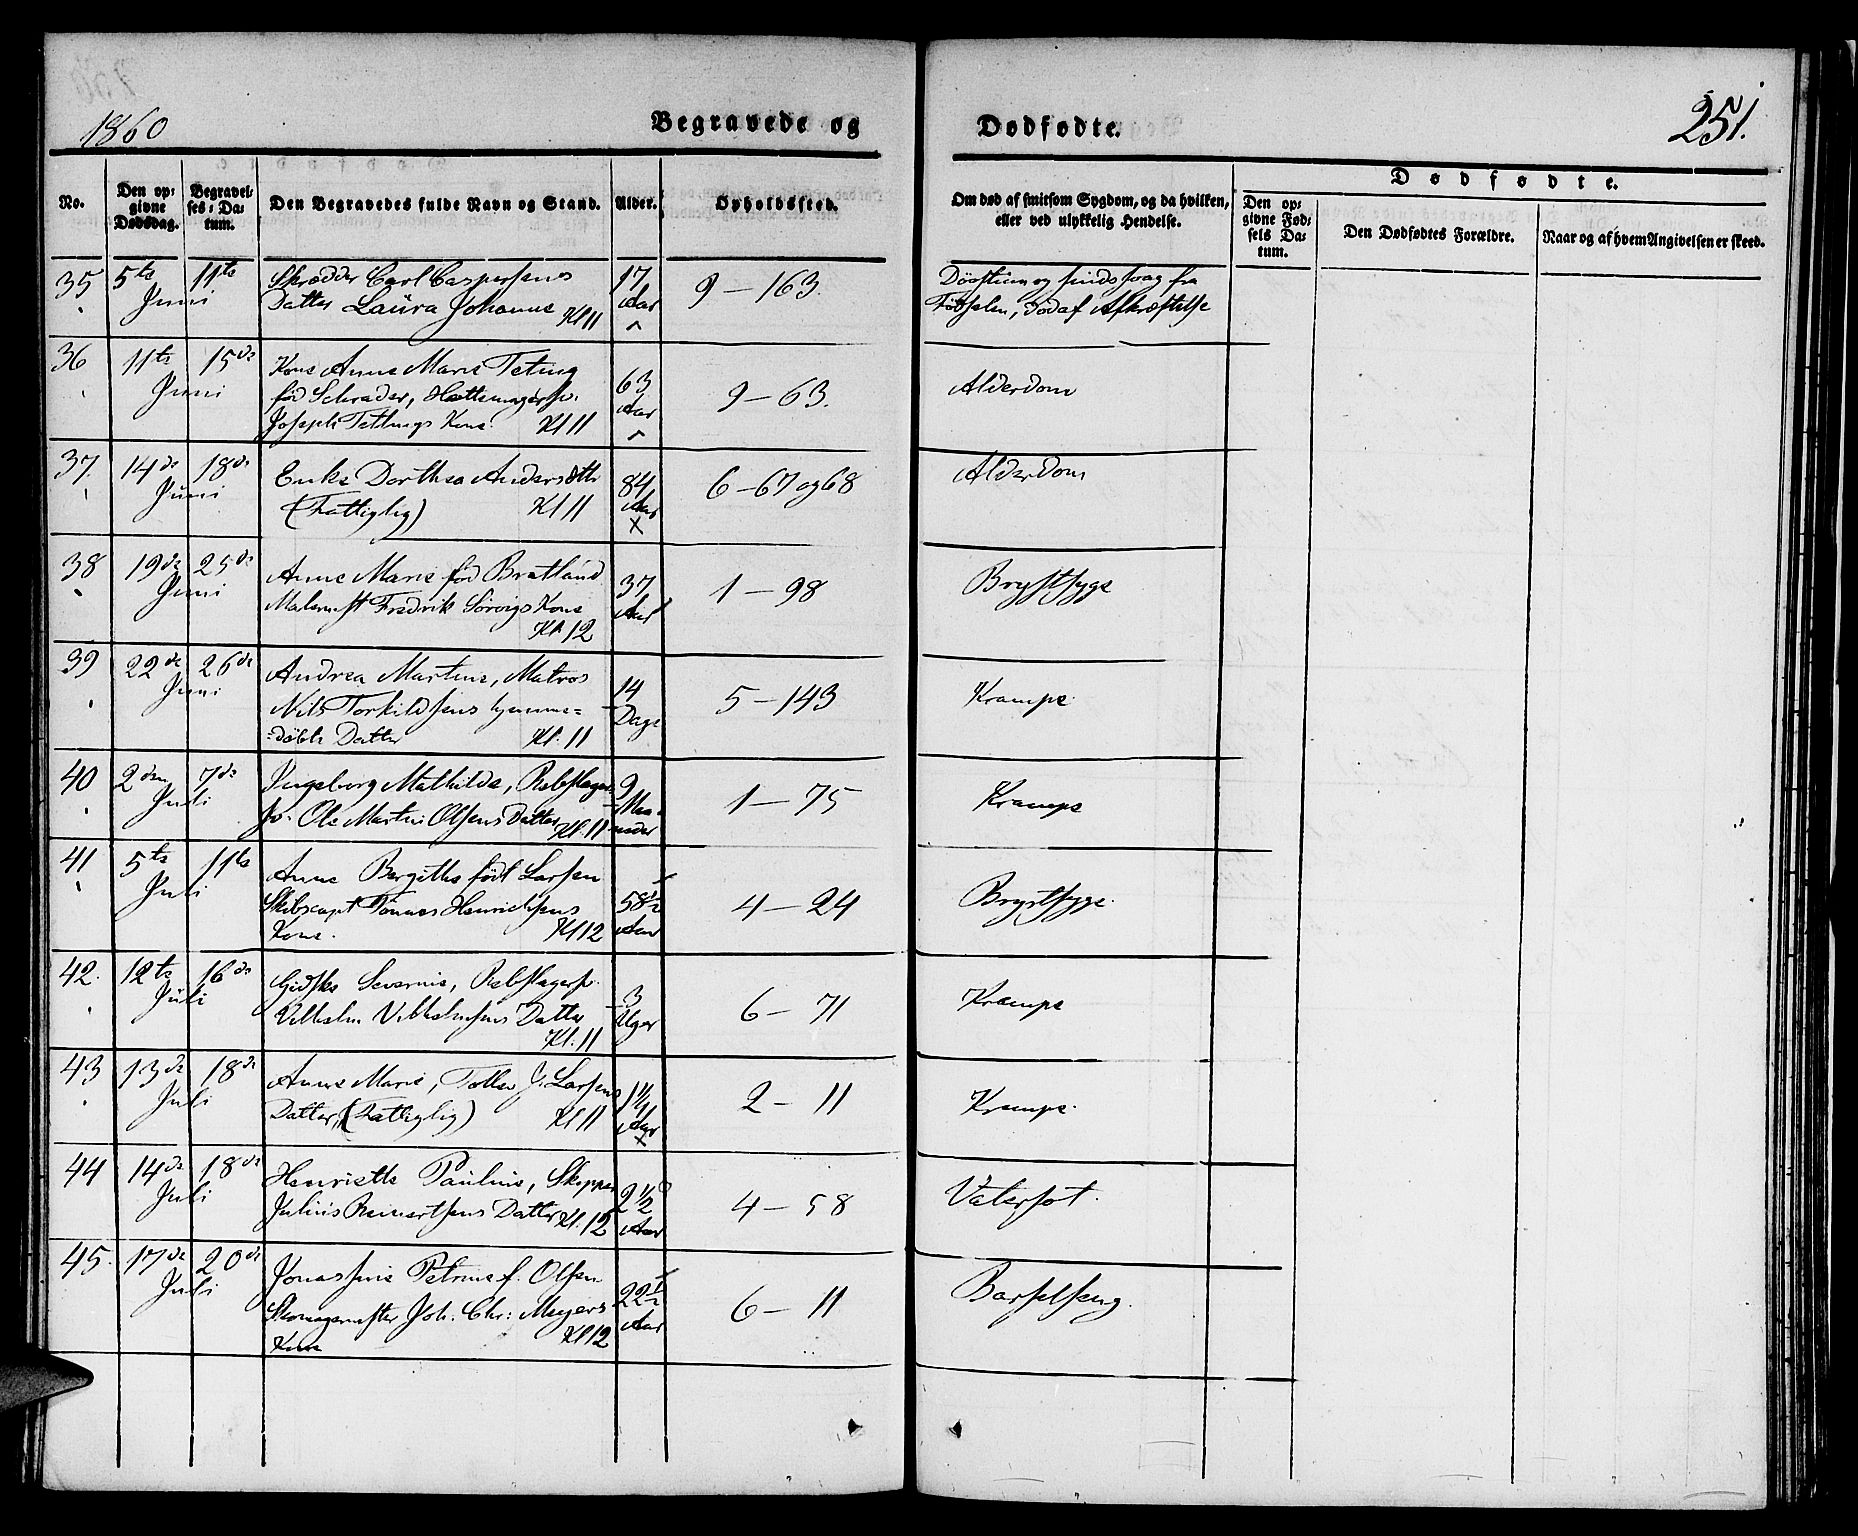 1860
Begravede og
Dødfødte.
251.
No.
Den op-
givne
Dødsdag.
Begravel-
ses-Da-
tum.
Den Begravedes fulde Navn og Stand.
Alder.
Opholdssted.
Om død af smitsom Sygdom, og da hvilken,
eller ved ulykkelig Hendelse.
Dødfødte.
Den op-
givne Fød-
sels Da-
tum.
Den Dødfødtes Forældre.
Naar og af hvem Angivelsen er skeed.
35 5te 11te Skrædder Carl Caspersens 17
Juni Datter Laura Johanne Kl 11 Aar 9-163.
Døvstum og sindssvag fra
Fødselen, død af Afkræftelse
36 11te 15de Kone Anne Marie Teting 63
Juni fød Schrader, Hattemager
Joseph Tettings Kone Kl 11 Aar 9-63. Alderdom
37. 14de 18de Enke Dorthea Andersdttr 84
Juni (Fattiglig) Kl 11 Aar x 6-67 og 68 Alderdom
38 19de 25de Anne Marie fød Bratland 37
Juni Malermst Fredrik Sørvigs Kone Aar
Kl 12 1-98 Brystsyge
39 22de 26de Andrea Martine, Matros 14
Juni Nils Torkildsens hjemme= Dage
=døbte Datter Kl. 11 5-143 Krampe.
40 2den 7de Ingeborg Mathilde, Rebslager 9
Juli Ole Martin Olsens Datter Kl. 11 Maa-
neder 1-75 Krampe
41 5te 11te Anne Bergithe født Larsen
Juli Skibscapt Tønnes Henrichsens 58½
Kone. Kl 12 Aar 4-24 Brystsyge.
42. 12te 16de Gidske Severine, Rebslager 3
Juli Vilhelm Vilhelmsens Datter Uger
Kl. 11 6-71 Krampe
43 13de 18de Anne Marie, J. Larsens 1¼
Juli Datter, (Fattiglig) Kl 11 Aar x 2-11 Krampe.
44 14de 18de Henriette Pauline, Skipper 2½
Juli Julius Reinertsens Datter Kl. 12 Aar 4-58 Vatersot.
45. 17de 20de Jonassine Petrine f. Olsen 22½
Juli Skomagermster Joh. Chr: Meyers Aar
Kone Kl 12 6-11 Barselseng.